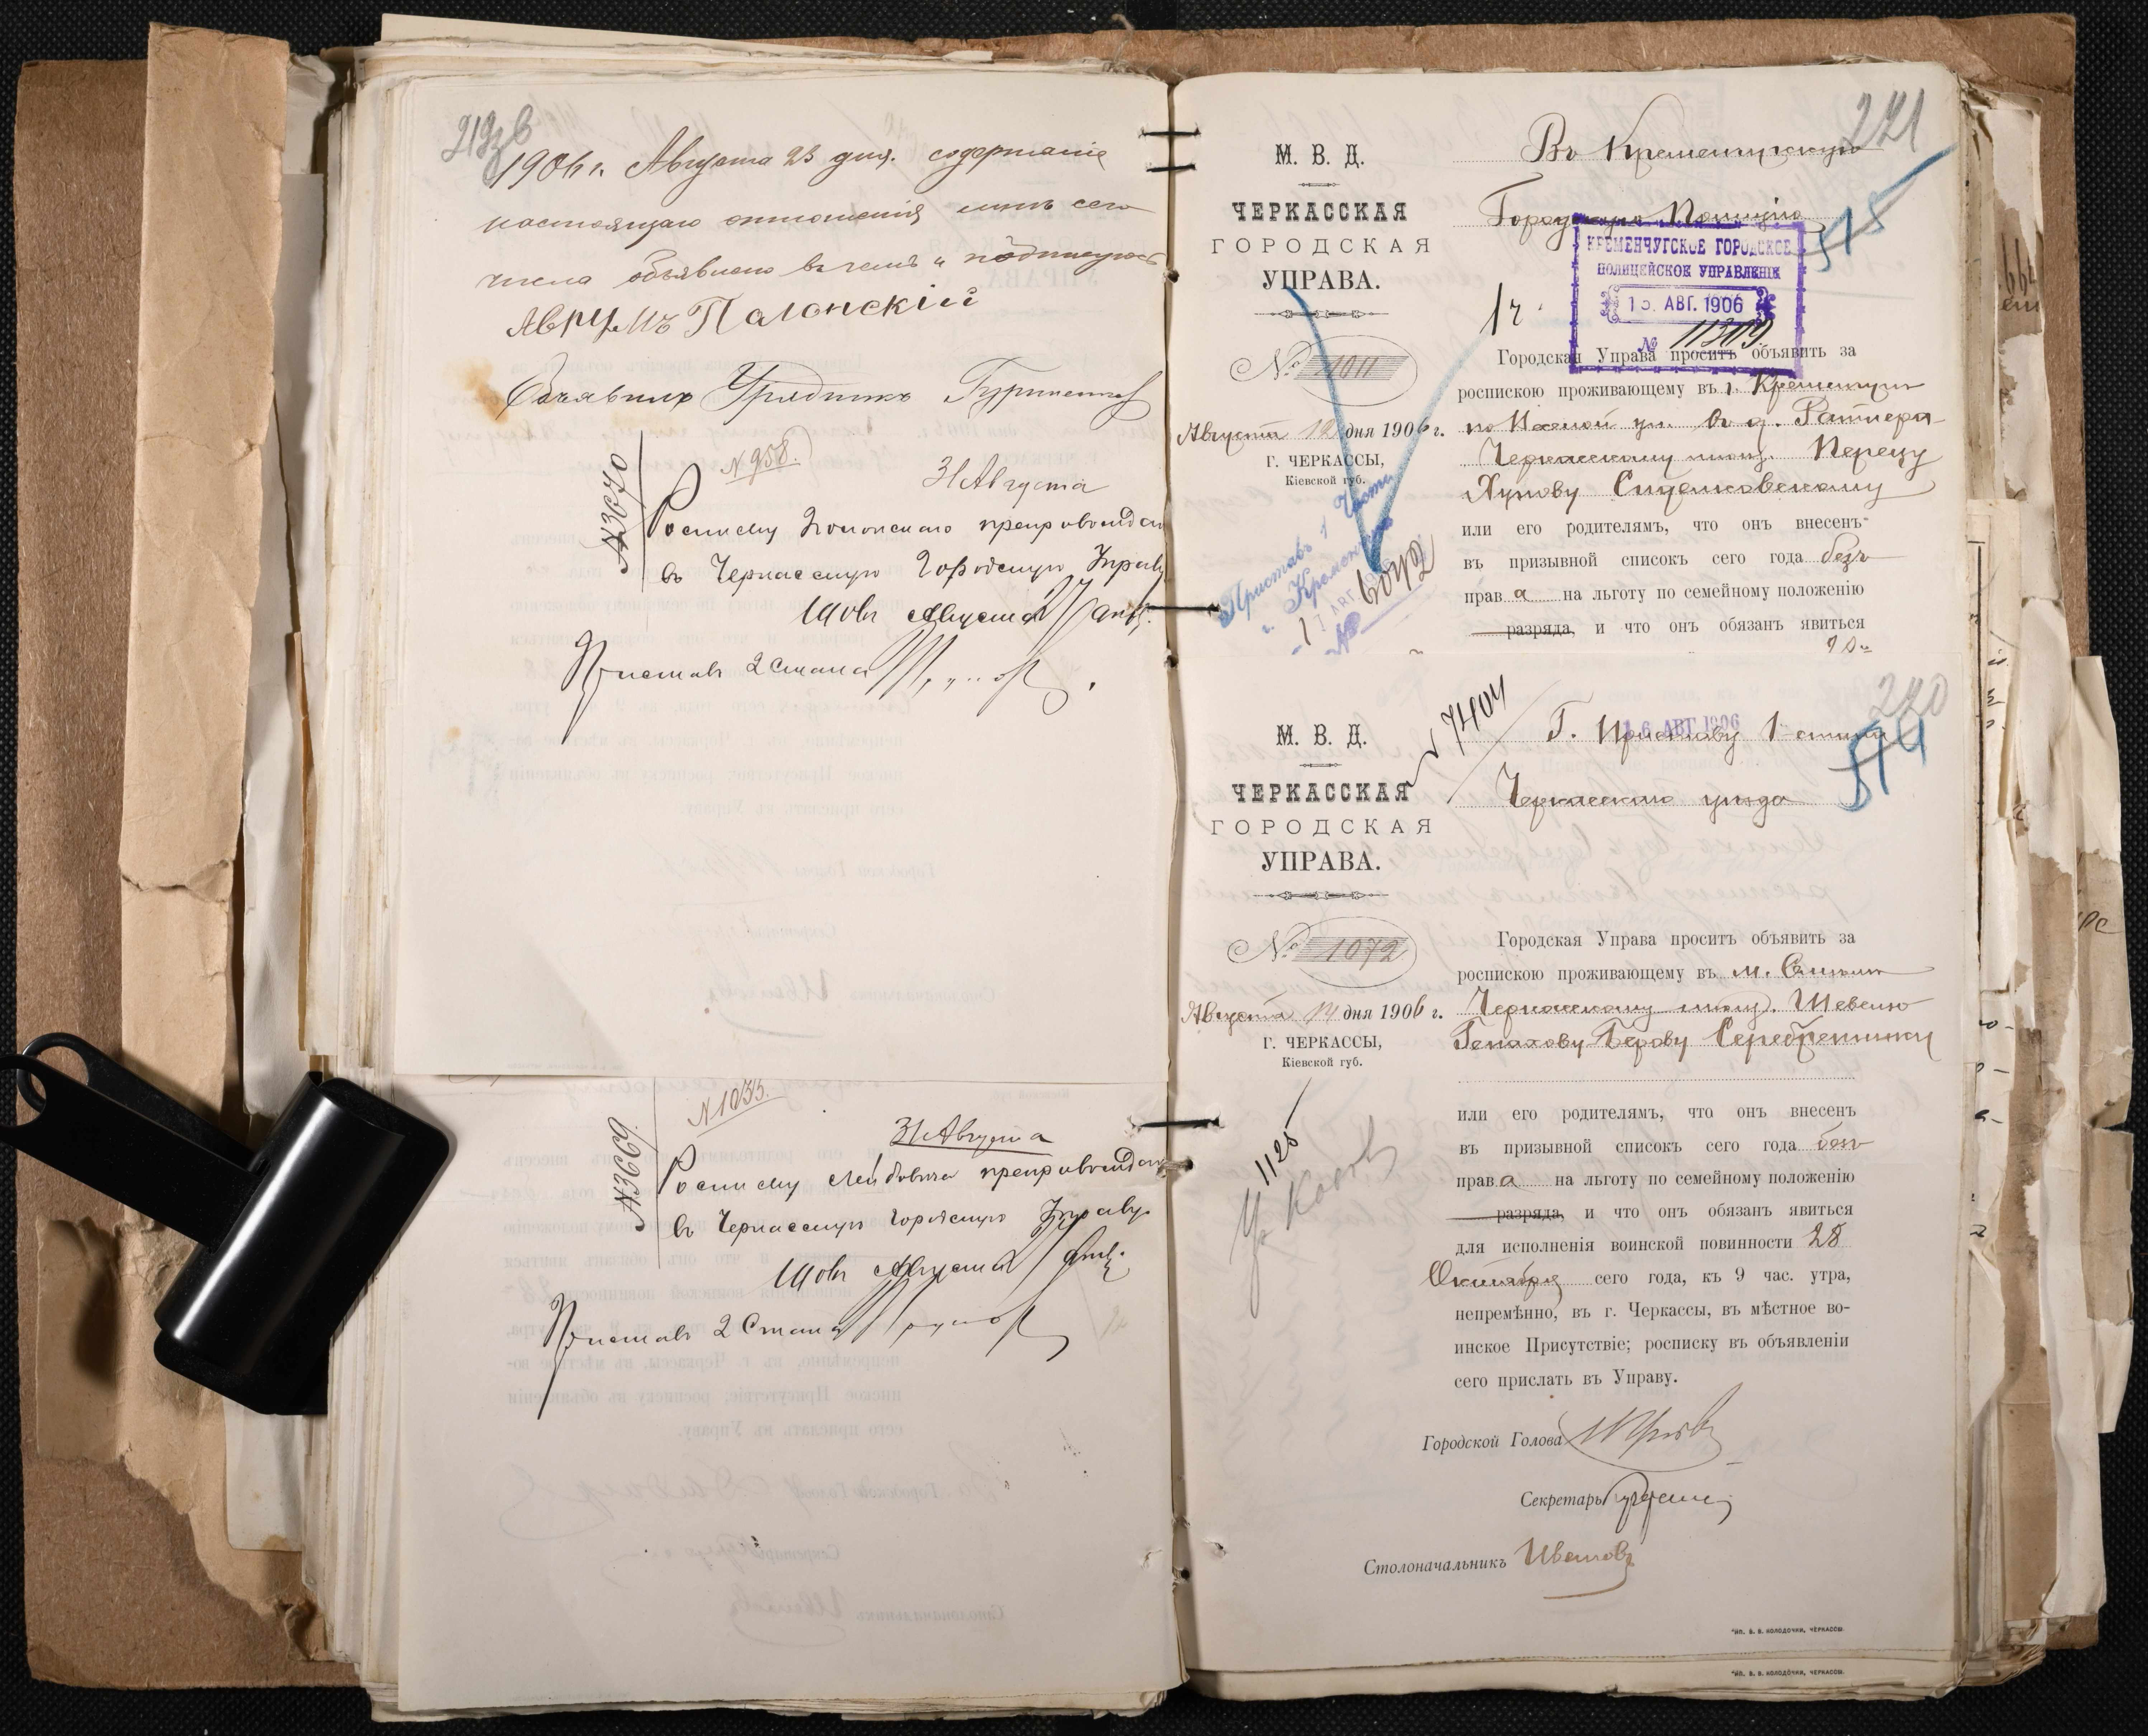 219 об
1906 г. Августа 23 дня. содержаніе
настоящаго отношенія мнѣ сего
числа объявлено въ чемъ и подписуюсь
Аврумъ Палонскій
Объявилъ Урядникъ
№ 3670
№ 958.
31 Августа
Росписку Полонскаго препровождаю
въ Черкасскую Городскую Управу
Августа
Приставъ 2 Стана
№ 3669
№ 1035.
31 Августа
Росписку Лейбовича препровождаю
въ Черкасскую Городскую Управу
Августа
Приставъ 2 Стана
221
515
М. В. Д.
ЧЕРКАССКАЯ
ГОРОДСКАЯ
УПРАВА.
№ 1011
Августа 12 дня 1906 г.
Г. ЧЕРКАССЫ,
Кіевской губ.
Приставъ 1 Части
г. Кременчуга
АВГ
№ 6042
Въ Кременчугскую
Городскую Полицію
КРЕМЕНЧУГСКОЕ ГОРОДСКОЕ
ПОЛИЦЕЙСКОЕ УПРАВЛЕНІЕ
15. АВГ. 1906
№ 11309.
1 ч.
Городская Управа проситъ объявить за
роспискою проживающему въ г. Кременчугѣ
по ул. въ д. Ратнера
Черкасскому мѣщ. Перецу
Сиделковскому
или его родителямъ, что онъ внесенъ
въ призывной списокъ сего года безъ
права на льготу по семейному положенію
разряда, и что онъ обязанъ явиться
220
514
М. В. Д.
ЧЕРКАССКАЯ
ГОРОДСКАЯ
УПРАВА.
№ 7404
№ 1072
Августа 14 дня 1906 г.
Г. ЧЕРКАССЫ,
Кіевской губ.
1125
16 АВГ 1906
Г. Приставу 1 стана
Черкасскаго уѣзда
Городская Управа проситъ объявить за
роспискою проживающему въ м. Смѣлѣ
Черкасскому мѣщ. Шевелю
Генахову Берову Серебреннику
или его родителямъ, что онъ внесенъ
въ призывной списокъ сего года безъ
права на льготу по семейному положенію
разряда, и что онъ обязанъ явиться
для исполненія воинской повинности 28
Октября сего года, къ 9 час. утра,
непремѣнно, въ г. Черкассы, въ мѣстное во-
инское Присутствіе; росписку въ объявленіи
сего прислать въ Управу.
Городской Голова
Секретарь
Столоначальникъ Ивановъ
ТИП. В. В. КОЛОДОЧКИ, ЧЕРКАССЫ.
ТИП. В. В. КОЛОДОЧКИ, ЧЕРКАССЫ.